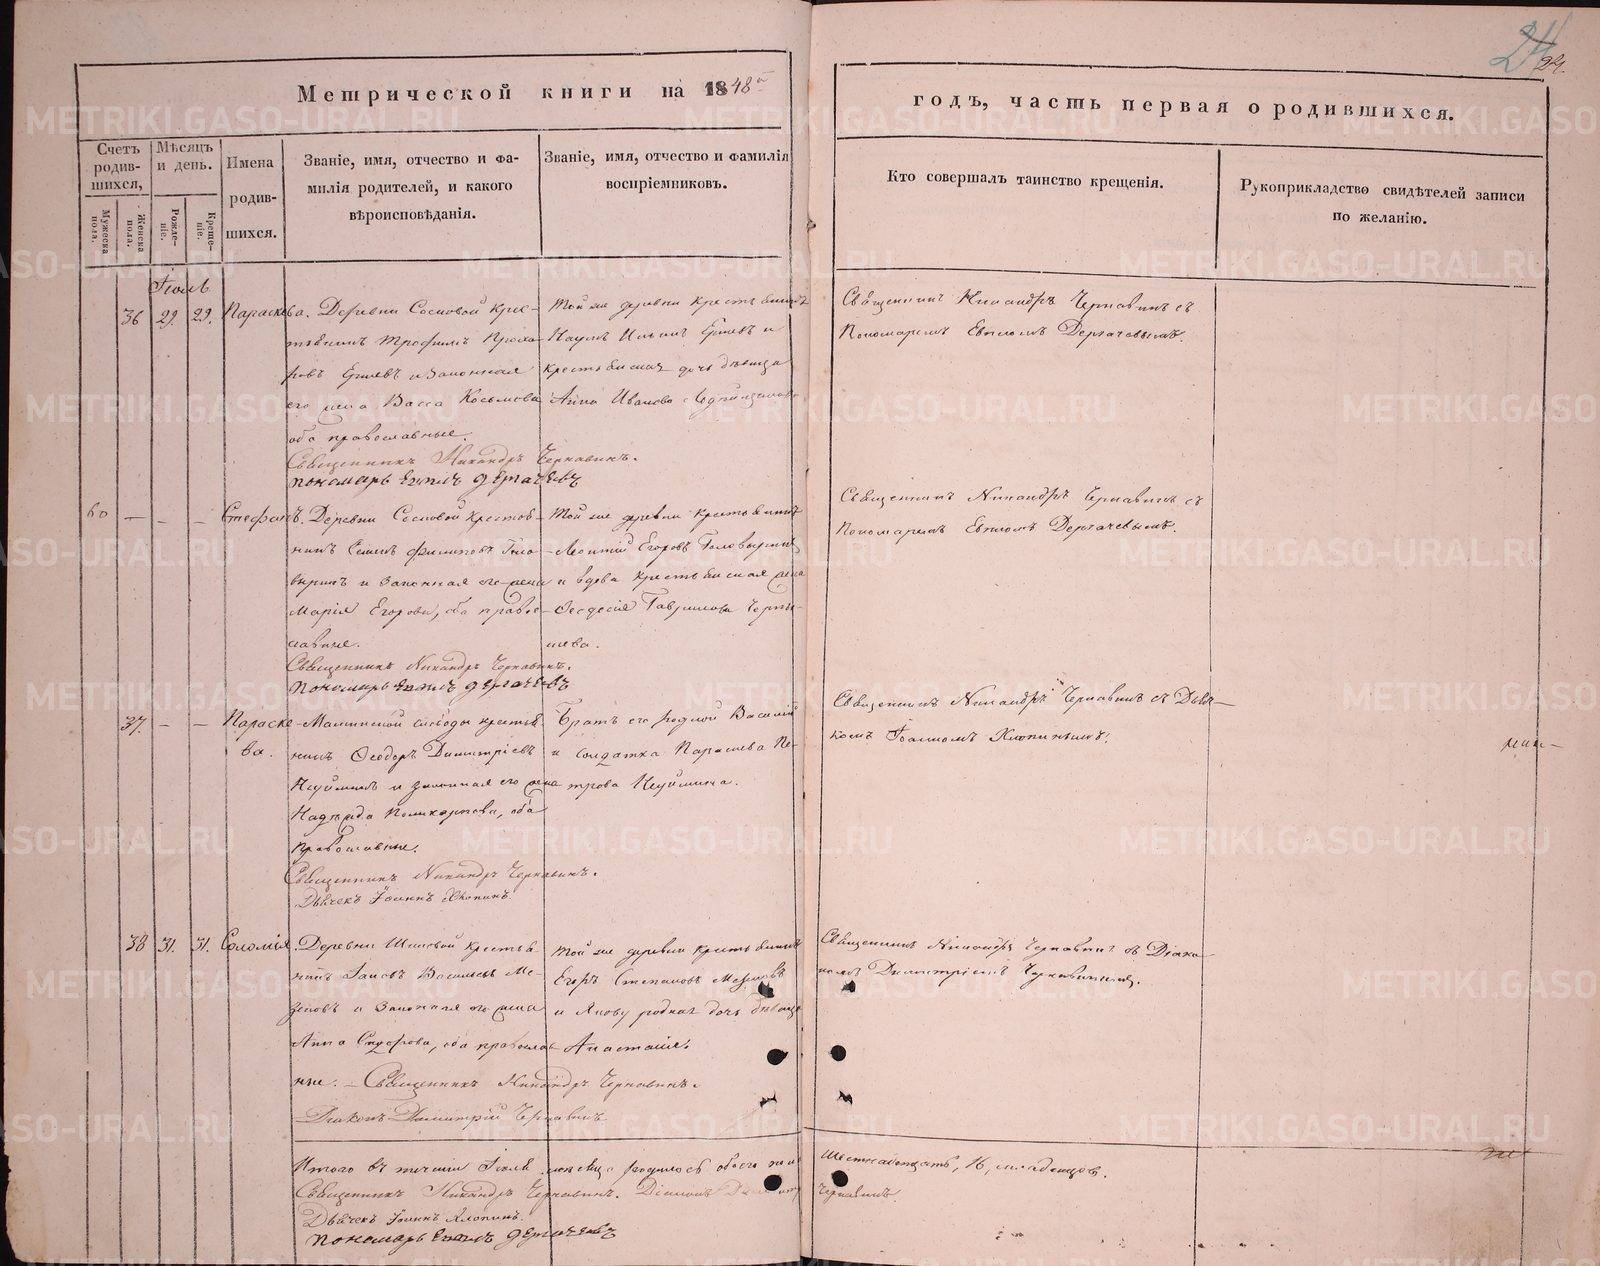 24
24.
Метрической книги на 1848й
годъ, часть первая о родившихся.
Счетъ родив-шихся,
Мужеска пола.
Женска пола.
Мѣсяцъ и день.
Рожде-ніе.
Креще-ніе.
Имена родив-шихся.
Званіе, имя, отчество и фа-
милія родителей, и какого
вѣроисповѣданія.
Званіе, имя, отчество и фамилія
воспріемниковъ.
Кто совершалъ таинство крещенія.
Рукоприкладство свидѣтелей записи
по желанію.
Іюль
36 29. 29. Параскева. Деревни Сосновой крес-
тьянинъ Трофимъ
и законная
его жена Васса Косьмова
оба православные.
Священникъ Никандръ Чернавинъ.
Пономарь Евѳимъ Дергачевъ
Той же деревни крестьянинъ
Наумъ Ильинъ и
крестьянская дочь дѣвица
Анна Иванова
Священникъ Никандръ Чернавинъ съ
Пономаремъ Евѳимомъ Дергачевымъ.
60 — — — Стефанъ. Деревни Сосновой крестья-
нинъ Семенъ Филиповъ Голо-
выринъ и законная его жена
Марія Егорова, оба право-
славные.
Священникъ Никандръ Чернавинъ.
Пономарь Евѳимъ Дергачевъ
Той же деревни крестьянинъ
Леонтій Егоровъ Головыринъ
и вдова крестьянская жена
Ѳеодосія Гаврилова Черны-
шева.
Священникъ Никандръ Чернавинъ съ
Пономаремъ Евѳимомъ Дергачевымъ.
37. — — Параске-
ва.
слободы крестья-
нинъ Ѳеодоръ Димитріевъ
Неуйминъ и законная его жена
Надежда Поликарпова, оба
православные.
Священникъ Никандръ Чернавинъ.
Дьячекъ Іоаннъ Хлопинъ.
Братъ его родной Василій
и солдатка Параскева Пе-
трова Неуймина.
Священникъ Никандръ Чернавинъ съ Дьяч-
комъ Іоанномъ Хлопинымъ.
38 31. 31. Соломія. Деревни крестья-
нинъ Васильевъ Ме-
зеновъ и законная его жена
Анна Сидорова, оба православ-
ные. — Священникъ Никандръ Чернавинъ.
Діаконъ Димитрій Чернавинъ
Той же деревни крестьянинъ
Егоръ Степановъ
и родная дочь дѣвица
Анастасія.
Священникъ Никандръ Чернавинъ съ Діако-
номъ Димитріемъ Чернавинымъ.
Итого въ теченіи Іюля мѣсяца родилось обоего пола
Шестнадцать, 16, младенцовъ.
Священникъ Никандръ Чернавинъ. Діаконъ Димитрій
Чернавинъ.
Дьячекъ Іоаннъ Хлопинъ.
Пономарь Евѳимъ Дергачевъ
METRIKI.GASO-URAL.RU